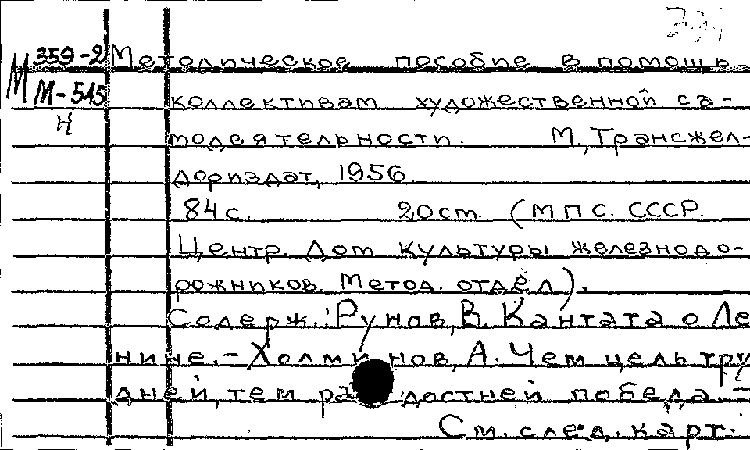 359-2 Методическое пособие в помощь
М М-545 коллективам художественной са-
Н модеятельности. М., Трансжел-
дориздат, 1956
84 с. 20 см (МПС СССР.
Центр. Дом культуры железнодо-
рожников. Метод. отдел).
Содерж.: Рунов, В. Кантата о Ле
нине. - Холминов, А. Чем цель тру
дней, тем радостней победа. -
См. след. карт.